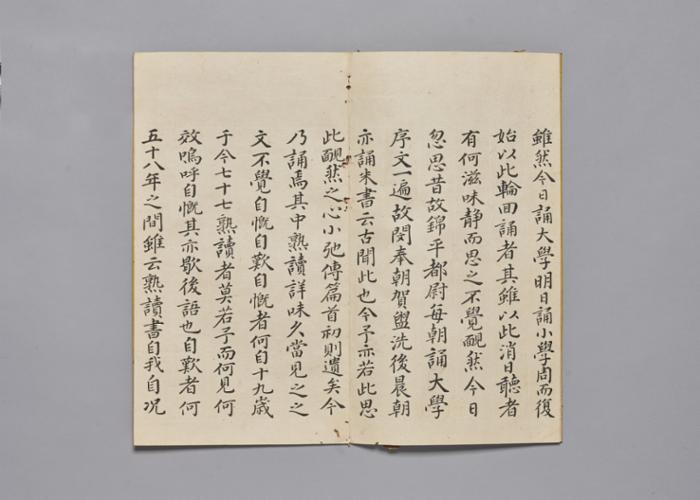 雖然今日誦大學明日誦小學周而復
始以此輪回誦者其雖以此消日聽者
有何滋味靜而思之不覺靦然今日
忽思昔故錦平都尉每朝誦大學
序文一遍故閔奉朝賀盥洗後晨朝
亦誦朱書云古聞此也今予亦若此思
此靦然之心小弛傳篇首初則遺矣今
乃誦焉其中熟讀詳味久當見之之
文不覺自慨自歎自慨者何自十九歲
于今七十七熟讀者莫若予而何見何
效嗚呼自慨其亦歇後語也自歎者何
五十八年之間雖云熟讀書自我自况